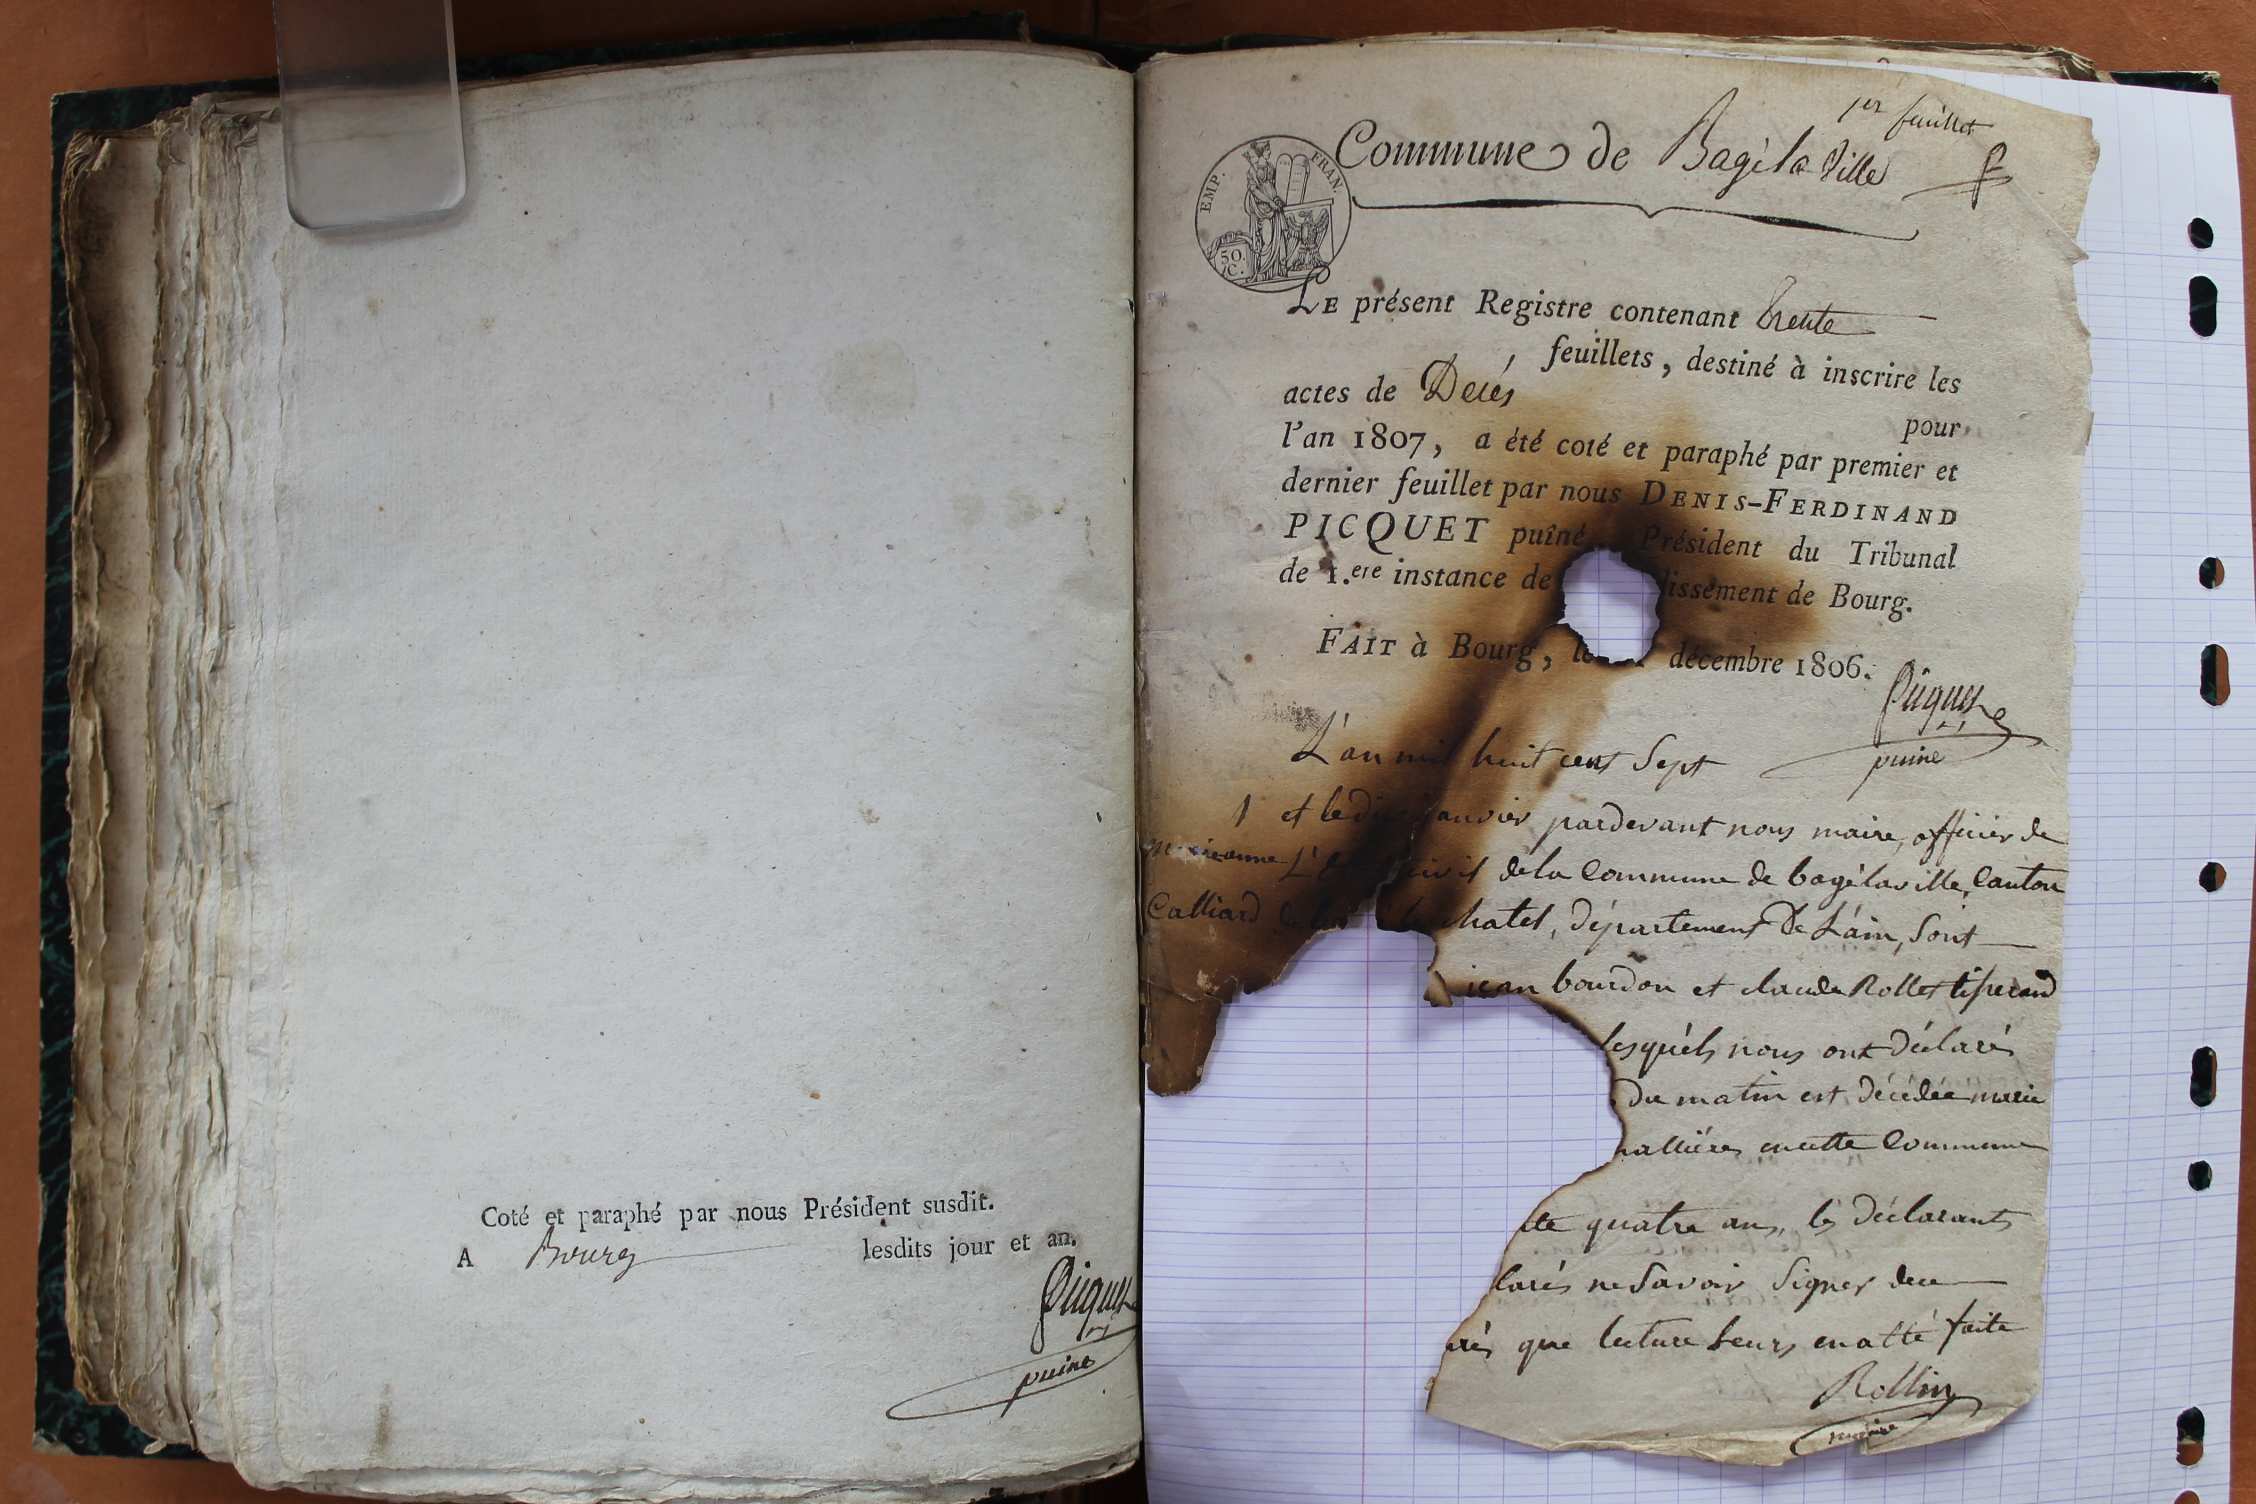 Coté et paraphé par nous Président susdit.
A Bourg lesdits jour et an.
Picquet
puiné
1er feuillet
Commune de Bagé la Ville
EMP. FRAN.
50. C.
LE présent Registre contenant trente
feuillets, destiné à inscrire les
actes de Decés
pour
l'an 1807, a été coté et paraphé par premier et
dernier feuillet par nous DENIS-FERDINAND
PICQUET puîné, Président du Tribunal
de 1.ere instance de lissement de Bourg.
FAIT à Bourg, le décembre 1806.
Picquet
puiné
L'an mil huit cent Sept
1 et le janvier pardevant nous maire, officier de
L' civil de la Commune de bagé la ville, Canton
Calliard chatel, département De L'ain, Sont
jean bourdon et claude Rollet tiserand
lesquels nous ont déclarés
Du matin est décédée marie
en cette Commune
quatre ans, les déclarants
larés ne Savoir Signer de ce
que lecture Leurs en a été faite
Rollin
maire